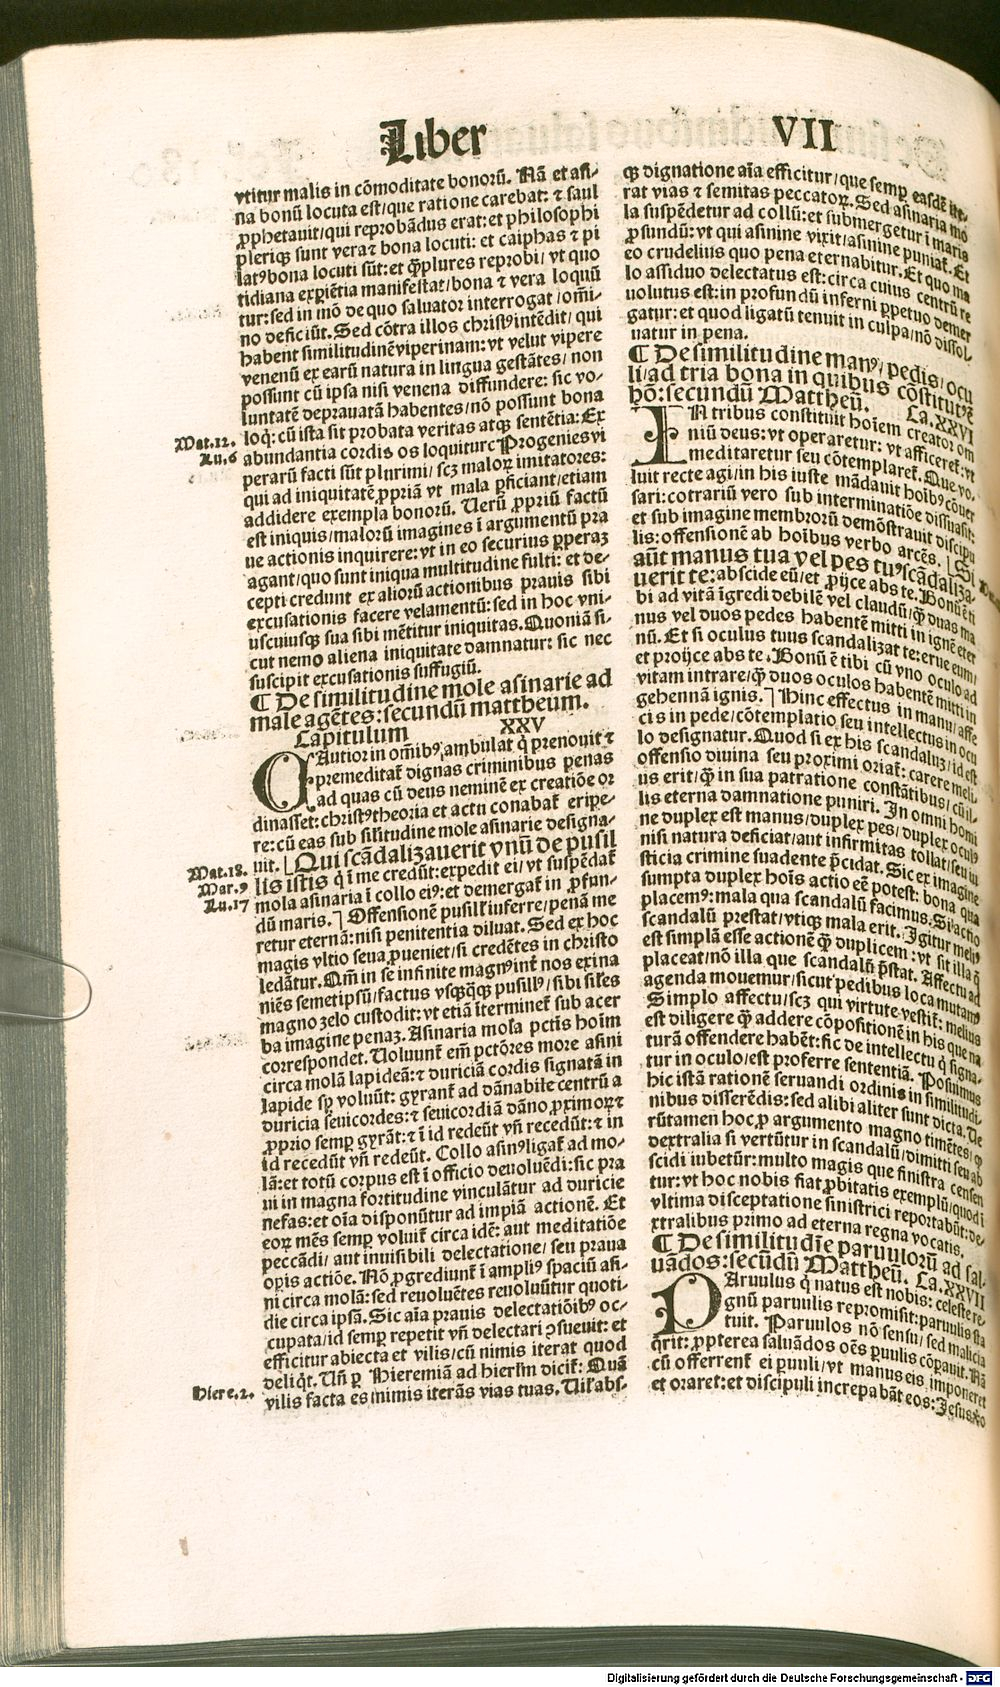 Liber VII
vtitur malis in cōmoditate bonorū. Nā et asi-
na bonū locuta est/que ratione carebat: ⁊ saul
ꝓphetauit/qui reprobādus erat: et philosophi
pleriqꝫ sunt vera ⁊ bona locuti: et caiphas ⁊ pi
latꝰ bona locuti sūt: et q̄plures reprobi/ vt quo
tidiana exꝑiētia manifestat/bona ⁊ vera loquū
tur: sed in mō de quo saluator interrogat /om̄i-
no deficiūt. Sed cōtra illos christꝰ intēdit/ qui
habent similitudinē viperinam: vt velut vipere
venenū ex earū natura in lingua gestātes/ non
possunt cū ipsa nisi venena diffundere: sic vo-
luntatē deprauatā habentes/nō possunt bona
loqͥ: cū ista sit probata veritas atqꝫ sentētia: Ex
Mat.12. abundantia cordis os loquitur: Progenies vi
Lu.6 perarū facti sūt plurimi/ scꝫ maloꝝ imitatores:
qui ad iniquitatē ꝓpriā vt mala ꝑficiant/etiam
addidere exempla bonorū. Uerū ꝓpriū factū
est iniquis/malorū imagines ī argumentū pra
ue actionis inquirere: vt in eo securius ꝑperaꝫ
agant/quo sunt iniqua multitudine fulti: et de-
cepti credunt ex aliorū actionibus prauis sibi
excusationis facere velamentū: sed in hoc vni-
uscuiusqꝫ sua sibi mētitur iniquitas. Quoniā si-
cut nemo aliena iniquitate damnatur: sic nec
suscipit excusationis suffugiū.
¶ De similitudine mole asinarie ad
male agētes: secundū mattheum.
Capitulum XXV
CAutior in om̄ibꝰ ambulat qͥ prenouit ⁊
premeditat̄ dignas criminibus penas
ad quas cū deus neminē ex creatiōe or
dinasset: christꝰ theoria et actu conabat̄ eripe-
re: cū eas sub sil̄itudine mole asinarie designa-
uit. [Qui scādalizauerit vnū de pusil
Mat.18. lis istis qͥ ī me credūt: expedit ei/ vt suspēdat̄
Mar.9 mola asinaria ī collo eiꝰ: et demergat̄ in ꝓfun-
Lu.17 dū maris.] Offensionē pusill̄ inferre/ penā me
retur eternā: nisi penitentia diluat. Sed ex hoc
magis vltio seua ꝓueniet/si credētes in christo
ledātur. Qm̄ in se infinite magnꝰ int̄ nos exina
niēs semetipsū/factus vsqꝫqꝫ pusillꝰ/ sibi sil̄es
magno zelo custodit: vt etiā īterminet̄ sub acer
ba imagine penaꝫ. Asinaria mola pctīs hoīm
correspondet. Uoluunt em̄ pctōres more asini
circa molā lapideā: ⁊ duriciā cordis signatā in
lapide sꝑ voluūt: gyrant ad dānabile centrū a
duricia seuicordes: ⁊ seuicordiā dāno ꝓximoꝝ ⁊
ꝓprio semꝑ gyrāt: ⁊ ī id redeūt vn̄ recedūt: ⁊ in
id recedūt vn̄ redeūt. Collo asinꝰ ligat̄ ad mo-
lā: et totū corpus est ī officio deuoluēdi: sic pra
ui in magna fortitudine vinculātur ad duricie
nefas: et oīa disponūtur ad impiā actionē. Et
eoꝝ mēs semꝑ voluit̄ circa idē: aut meditatiōe
peccādi/ aut inuisibili delectatione/ seu praua
oꝑis actiōe. Nō ꝓgrediunt̄ ī ampliꝰ spaciū asi-
ni circa molā: sed reuoluētes reuoluūtur quoti-
die circa ipsā. Sic aīa prauis delectatiōibꝰ oc-
cupata/id semꝑ repetit vn̄ delectari ↄsueuit: et
efficitur abiecta et vilis/cū nimis iterat quod
deliqͥt. Un̄ ꝑ Hieremiā ad hierlm̄ dicit̄: Quā
Hiere.2. vilis facta es nimis iterās vias tuas. Uil̄ abs-
qꝫ dignatione aīa efficitur/que semꝑ easdē ite-
rat vias ⁊ semitas peccatoꝝ. Sed asinaria mo
la suspēdetur ad collū: et submergetur ī maris
ꝓfundū: vt qui asinine vixit/asinine puniat̄. Et
eo crudelius quo pena eternabitur. Et quo ma
lo assiduo delectatus est: circa cuius centrū re
uolutus est: in profundū inferni ꝑpetuo demer
gatur: et quod ligatū tenuit in culpa/nō dissol-
uatur in pena.
¶ De similitudine manꝰ/ pedis/ ocu
li/ad tria bona in quibus cōstituit̄
hō: secundū Mattheū. Ca.XXVI
IN tribus constituit hoīem creator om
niū deus: vt operaretur: vt afficeret̄: vt
meditaretur seu cōtemplaret̄. Que vo-
luit recte agi/in his iuste mādauit hoībꝰ cōuer
sari: cotrariū vero sub interminatiōe dissuasit:
et sub imagine membrorū demōstrauit discipu
lis: offensionē ab hoībus verbo arcēs. [Si
aūt manus tua vel pes tuꝰ scādaliza-
uerit te: abscide eū/et ꝓijce abs te. Bonū ē ti
bi ad vitā īgredi debilē vel claudū/q̄ duas ma
nus vel duos pedes habentē mitti in ignē eter
nū. Et si oculus tuus scandalizat te: erue eum/
et proijce abs te. Bonū ē tibi cū vno oculo ad
vitam intrare/q̄ duos oculos habentē mitti in
gehennā ignis.] Hinc effectus in manu/ affe
ctis in pede/cōtemplatio seu intellectus in ocu
lo designatur. Quod si ex his scandaluꝫ/id est
offensio diuina seu proximi oriat̄: carere meli-
us erit/q̄ in sua patratione constātibus/ cū il-
lis eterna damnatione puniri. In omni homi
ne duplex est manus/duplex pes/ duplex oculꝰ
nisi natura deficiat/aut infirmitas tollat/seu iu
sticia crimine suadente p̄cidat. Sic ex imagine
sumpta duplex hoīs actio eē potest: bona qua
placemꝰ: mala qua scandalū facimus. Si actio
scandalū prestat/vtiqꝫ mala erit. Igitur meliꝰ
est simplā esse actionē q̄ duplicem: vt sit illa q̄
placeat/nō illa que scandalū p̄stat. Affectu ad
agenda mouemur/sicut pedibus loca mutamꝰ
Simplo affectu/scꝫ qui virtute vestit̄: melius
est diligere q̄ addere cōpositionē in his que na
turā offendere habēt: sic de intellectu qͥ signa-
tur in oculo/est proferre sententiā. Posuimus
hic istā rationē seruandi ordinis in similitudi-
nibus disserēdis: sed alibi aliter sunt dicta. Ue
rūtamen hoc ꝓ argumento magno timētes/ ꝙ
dextralia si vertūtur in scandalū/dimitti seu ab
scidi iubetūr: multo magis que sinistra censen
tur: vt hoc nobis fiat ꝓbitatis exemplū/quod i
vltima disceptatione sinistrici reportabūt: de-
xtralibus primo ad eterna regna vocatis.
¶ De similitudīe paruulorū ad sal-
uādos: secūdū Mattheū. Ca.XXVII
PAruulus qͥ natus est nobis: celeste re-
gnū paruulis repromisit: paruulis sta
tuit. Paruulos nō sensu/ sed malicia
qͥrit: ꝓpterea saluādos oēs ꝑuulis cōpauit. Nā
cū offerrent̄ ei ꝑuuli/vt manus eis imponeret
et oraret: et discipuli increpabāt eos: Jesus ꝟo
Digitalisierung gefördert durch die Deutsche Forschungsgemeinschaft - DFG